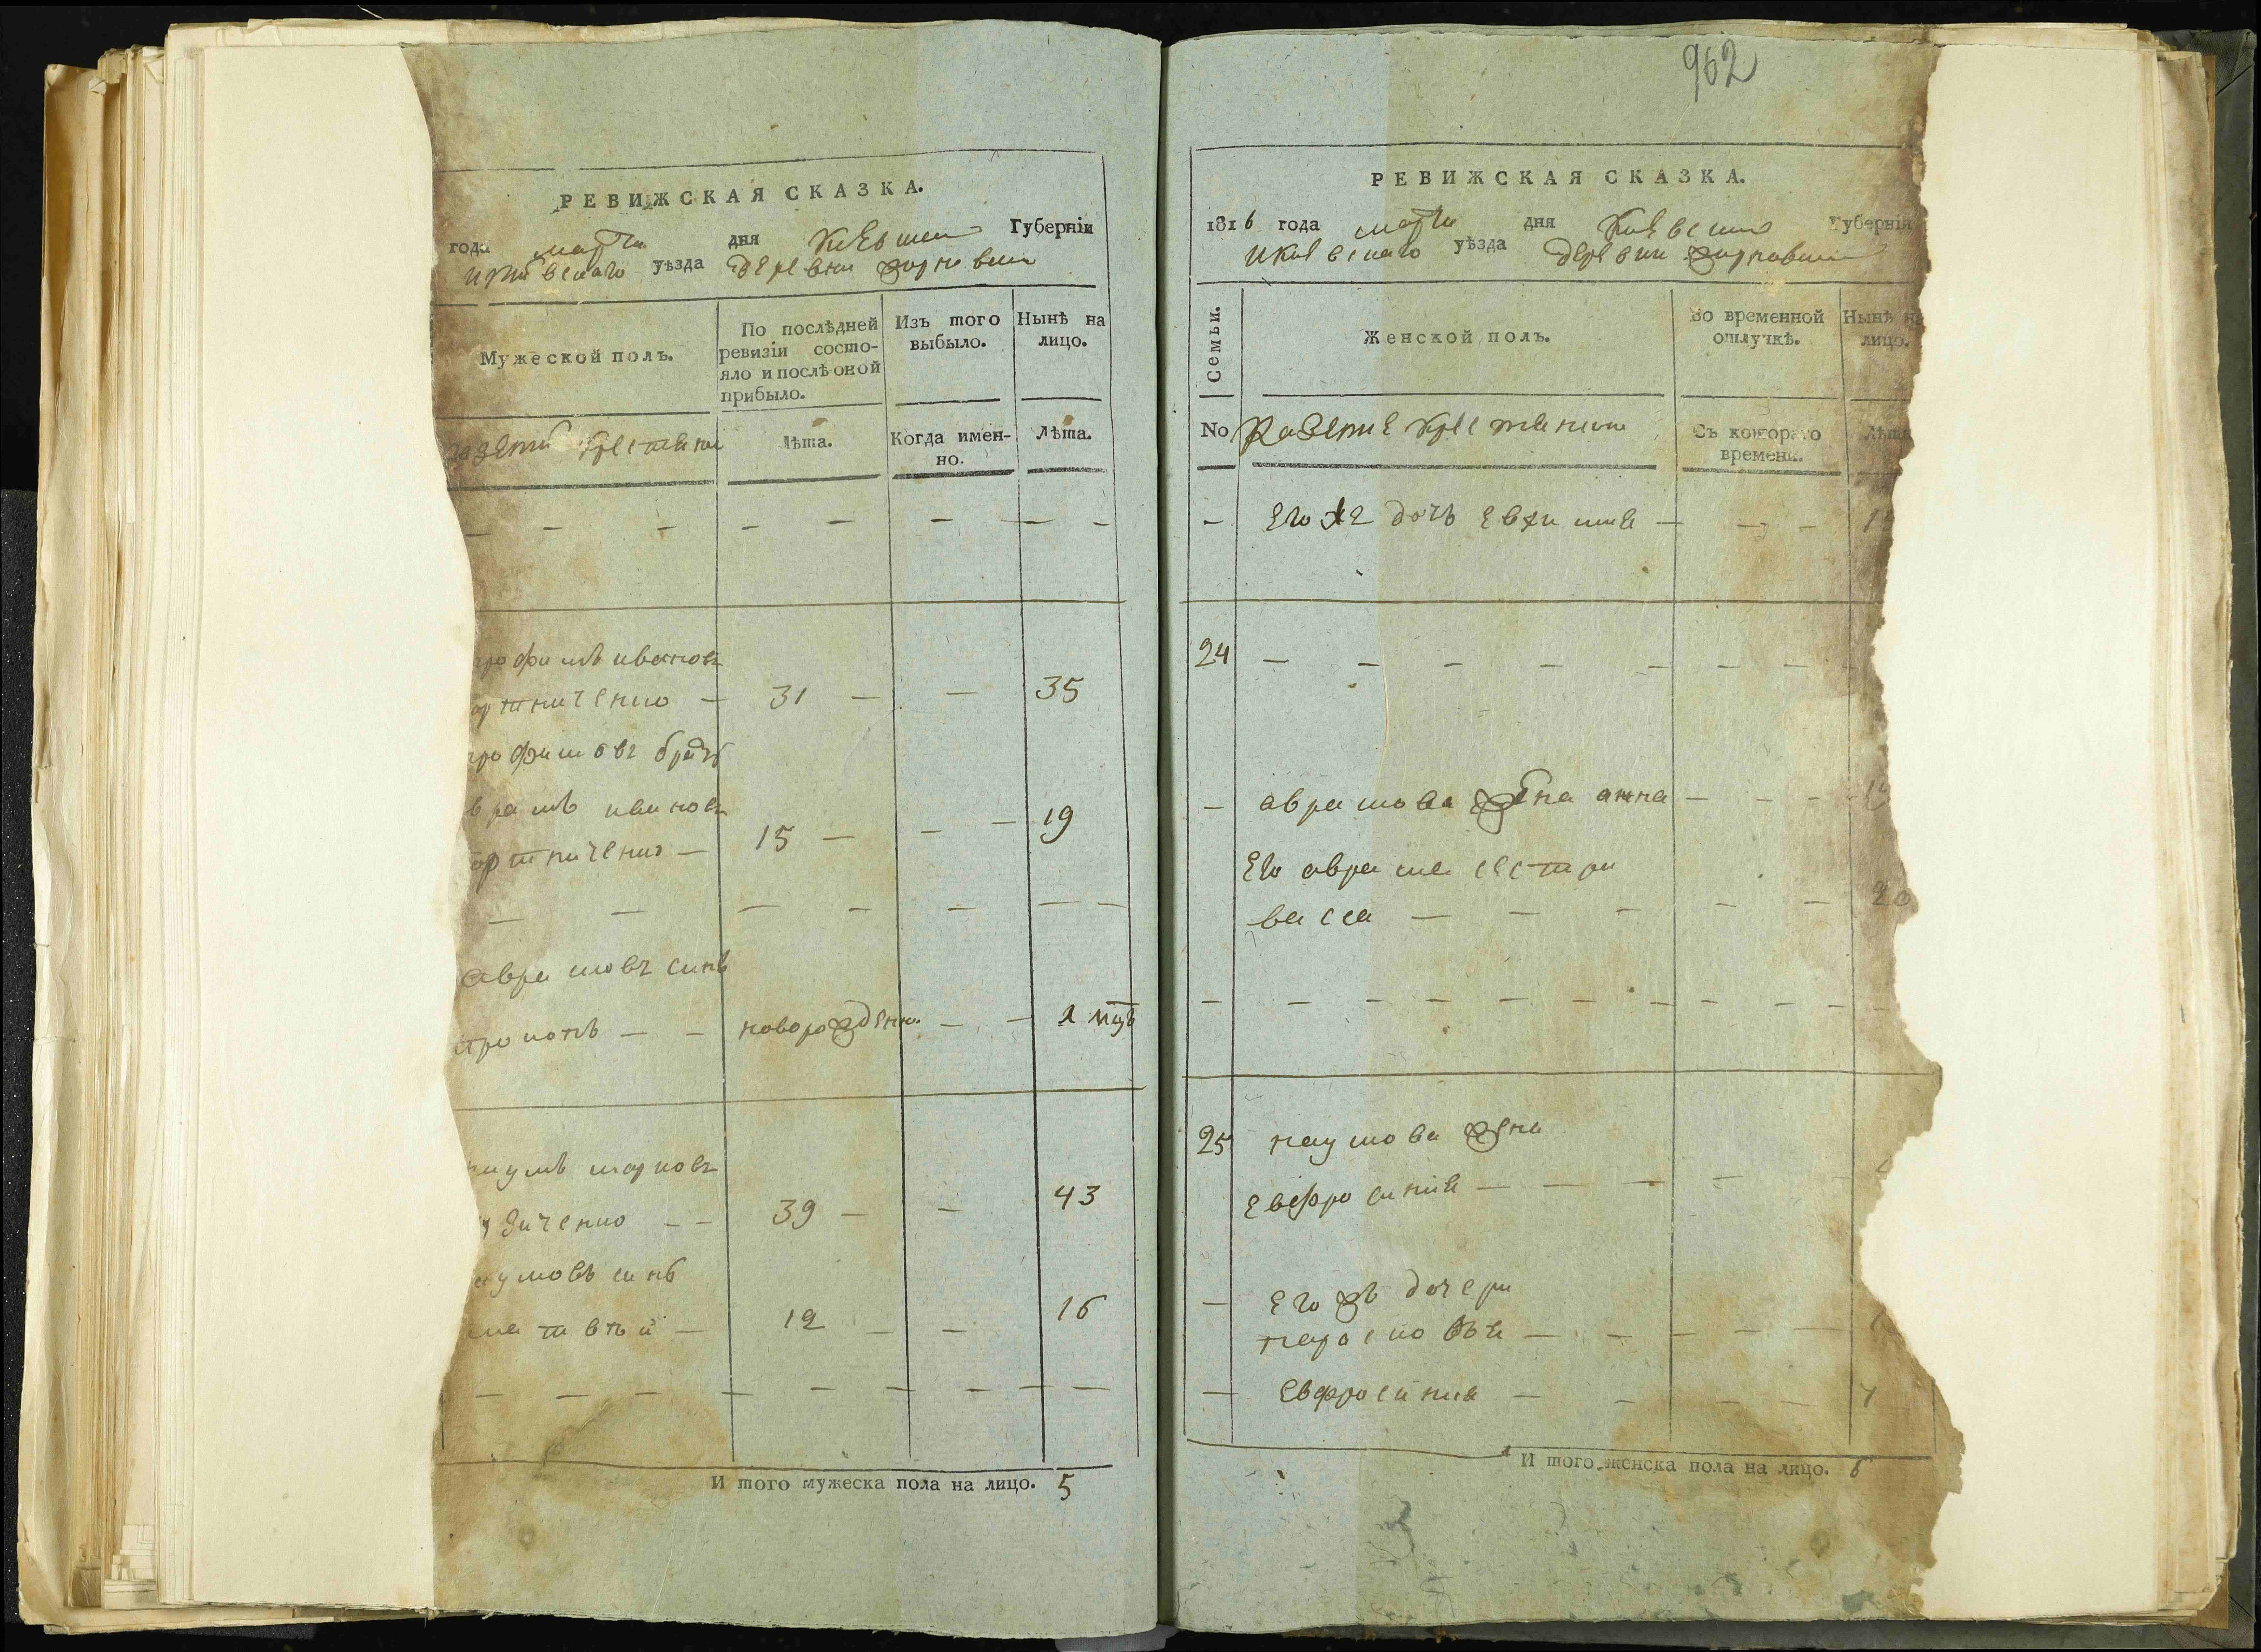 РЕВИЖСКАЯ СКАЗКА.
года марта дня Киевской Губернїи
уѣзда деревни
Мужеской полъ.
По послѣдней ревизїи состояло и послѣ оной прибыло.
Изъ того выбыло.
Нынѣ на лицо.
Лѣта.
Когда именно.
Лѣта.
— — — — — — — —
трофимъ ивановъ
ортниченко — 31 — — 35
трофимовъ братъ
врамъ ивановъ
ортниченко — 15 — — — 19
— — — — — — —
аврамовъ синъ
новорожденн. — —
наумъ марковъ
зиченко — — 39 — — 43
аумовъ синъ
матвѣй — 12 — — 16
— — — — — — — — —
И того мужеска пола на лицо. 5
962
РЕВИЖСКАЯ СКАЗКА.
1816 года марта дня Киевской Губернїи
уѣзда деревни
Семьи.
Женской полъ.
Во временной отлучкѣ.
Нынѣ на лицо.
No
Съ котораго времени.
Лѣта
— Его же дочь — — —
24 — — — — — — —
— аврамова жена анна — — —
Его аврама сестра
васса — — — — — 20
— — — — — — — — — —
25 наумова жена
Евфросинїя — — — —
— Его жъ дочери
парасковѣя — — — — —
— Евфросинїя — — — — 7
И того женска пола на лицо. 6